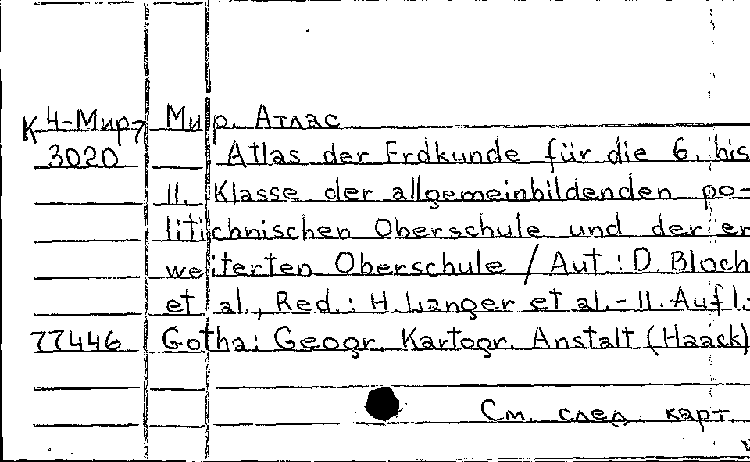 К 4-Мир-7 Мир. Атлас
3020 Atlas der Erdkunde für die 6. bis
11. Klasse der allgemeinbildenden po-
litichnischen Oberschule und der er
weiterten Oberschule / Aut.: D. Bloch
et al., Red.: H. Langer et al.-11. Aufl.
77446 Gotha: Geogr. Kartogr. Anstalt (Haack)
См. след. карт.